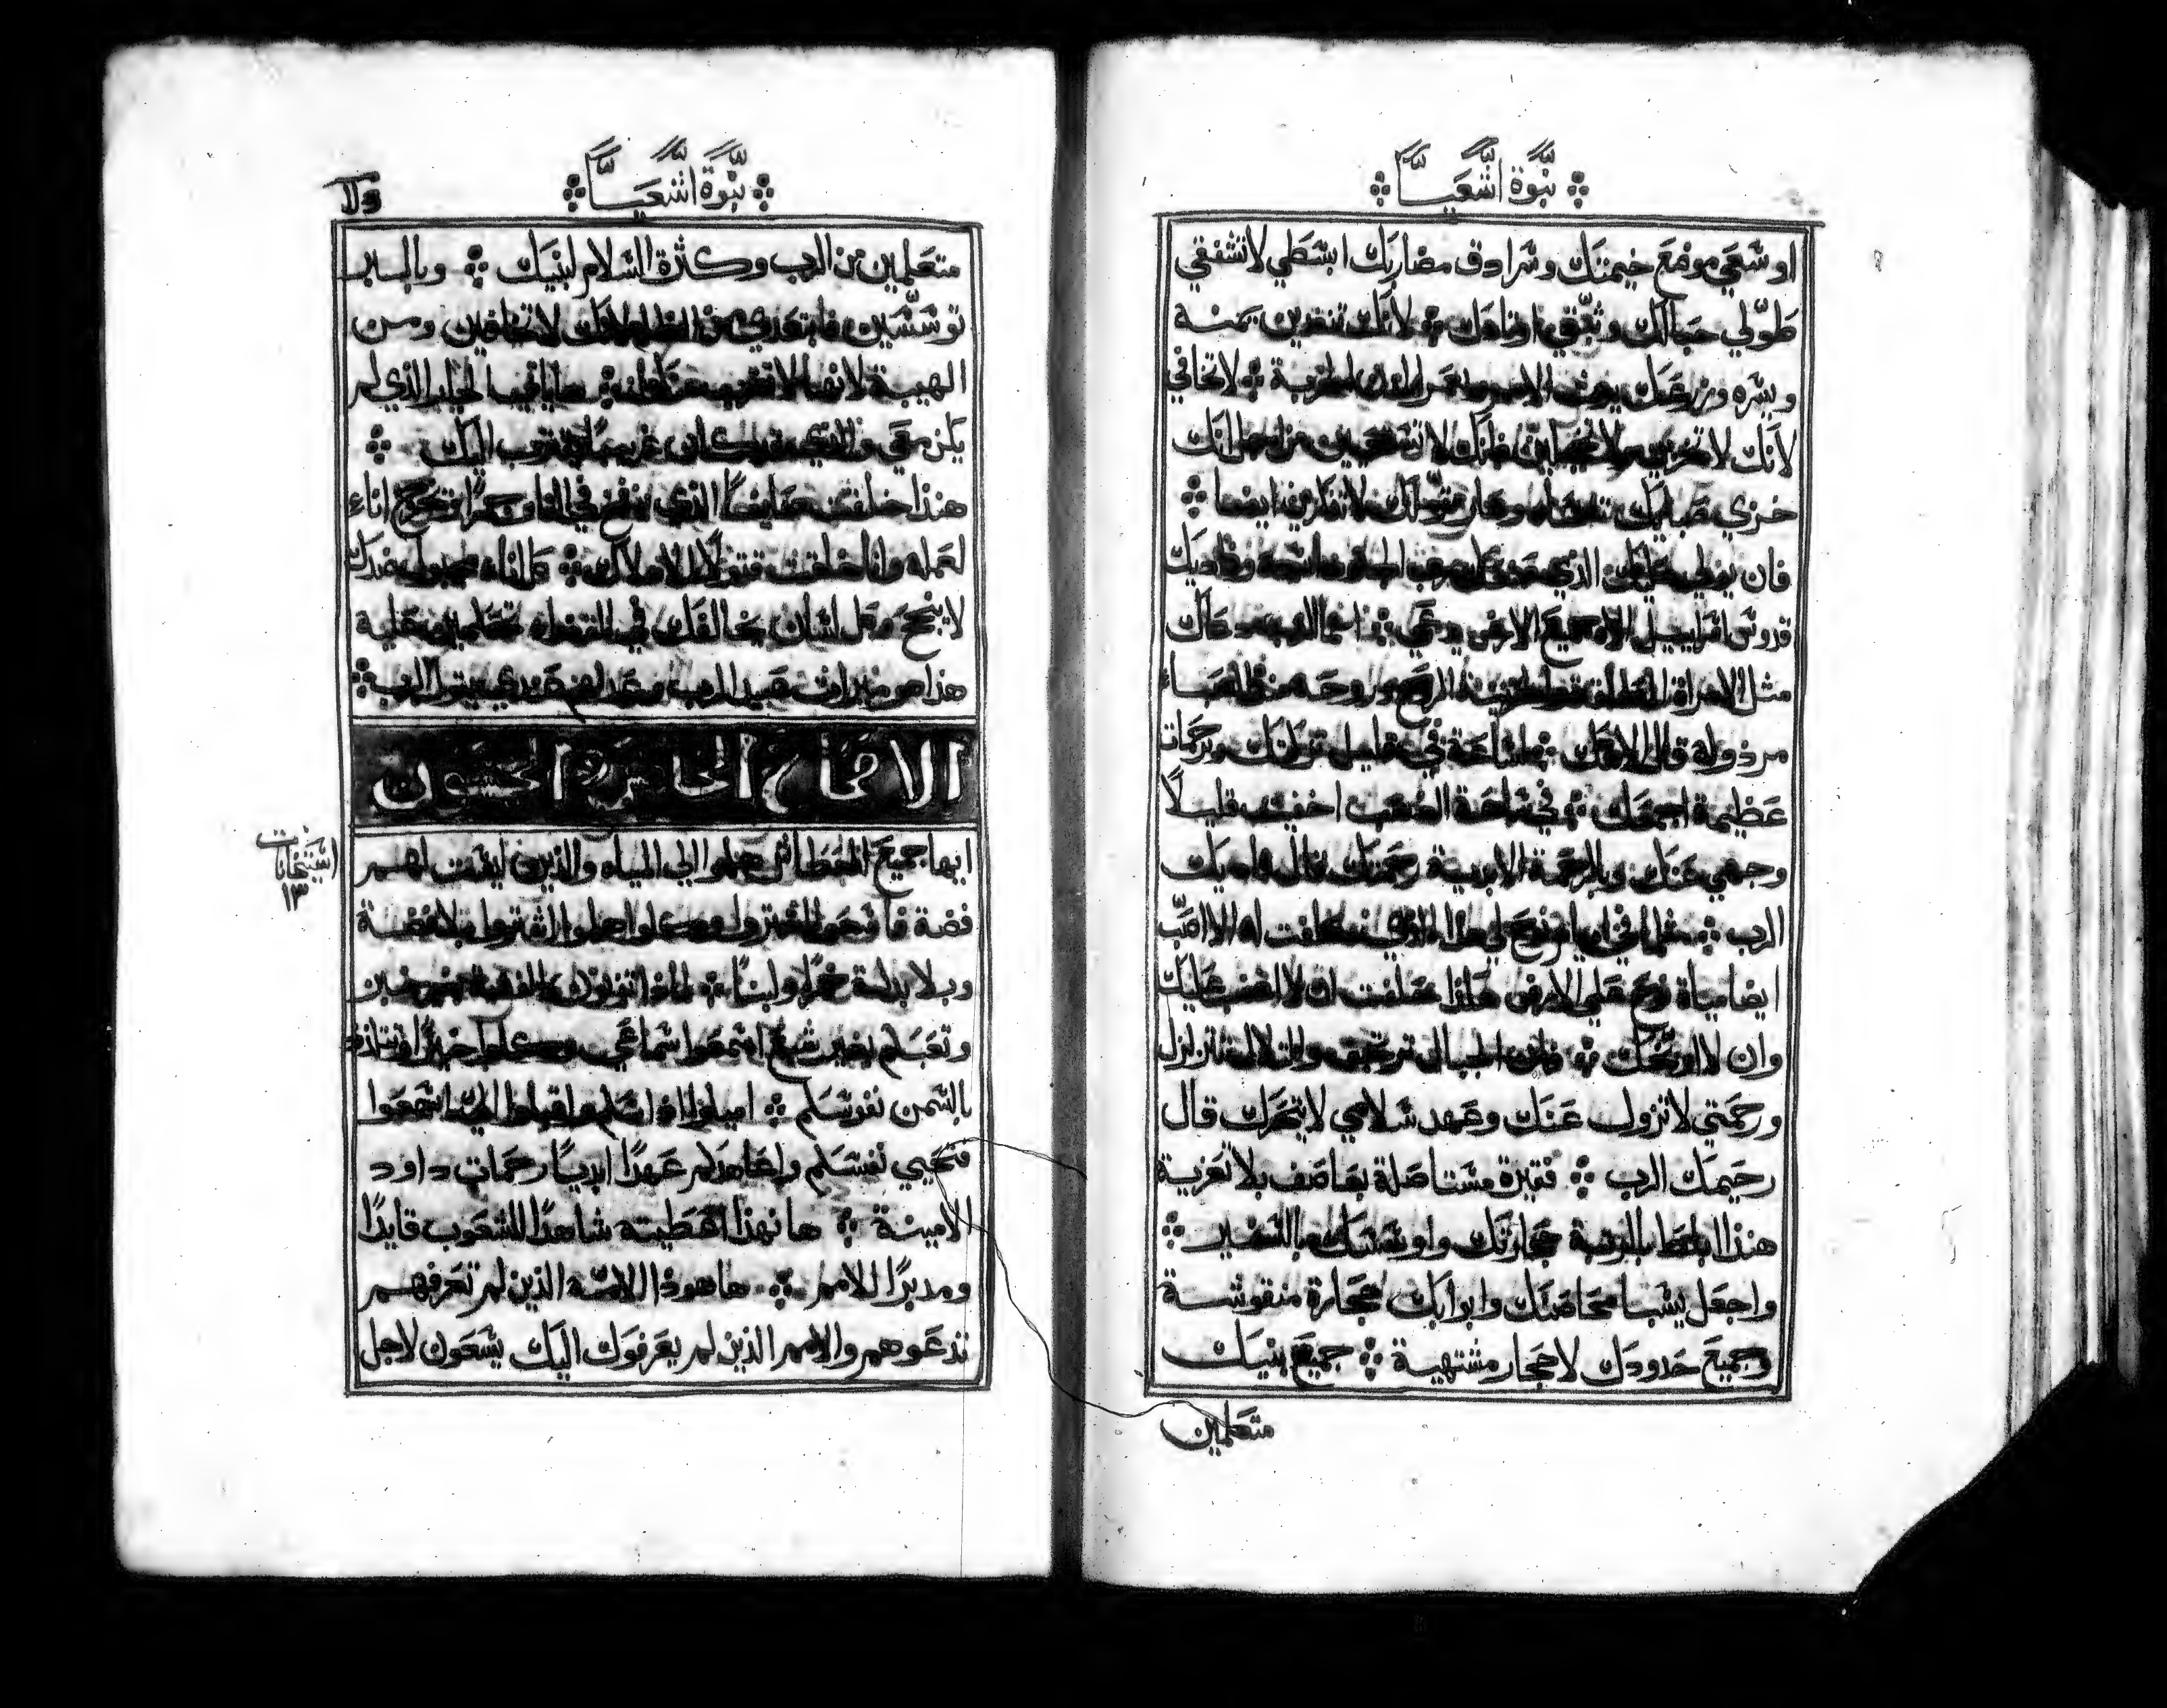 نبوة اشعيا
اوسعي موضع خيمتك وسرادق مضاربك ابسطي لا تشفقي
طولي حبالك وثبتي اوتادك لانك تنفدين يمنه
ويسره وزرعك يرث الامم ويعمر المدن الخربة لا تخافي
لانك لا تخزين ولا تخجلين فانك لا تستحيين من اجل انك
خزي صباك تنسين وعار ترملك لا تذكرين ايضا
فان يولي عليك الذي صنعك رب الجنود اسمه وفاديك
قدوس اسراييل الاه جميع الارض يدعي انما الرب دعاك
مثل الامراة المطلقة والحزينة الروح وزوجة منذ الصباء
مرذولة قال الاهك ساعة في قليل تركتك وبرحمات
عظيمة اجمعك في ساعة الغضب اخفيت قليلاً
وجهي عنك وبالرحمة الابدية رحمتك قال فاديك
الرب مثلما في ايام نوح لي هذا الذي حلفت له الا اصب
ايضا مياة نوح علي الارض هكذا حلفت ان لا اغضب عليك
وان لا اوبخك فان الجبال ترتجف والتلال تتزلزل
ورحمتي لا تزول عنك وعهد سلامي لا يتحرك قال
رحيمك الرب فقيرة مستاصلة بعاصف بلا تعزية
هنذا ابلط بالرتبة حجارتك واوسسك بالسفير
واجعل يشبا محاصنك وابوابك حجارة منقوشة
وجميع حدودك لاحجار مشتهية جميع بنيك
متعلمين
نبوة اشعيا
متعلمين من الرب وكثرة السلام لبنيك وبالبر
توسسين فابتعدي من الظلم لانك لا تخافين ومن
الهيبة لانها لا تقرب منك ها ياتي الجار الذي لم
يكن معي والذي كان غريبا يقترب اليك
هنذا خلقت صايغاً الذي ينفخ في النار جمراً ويخرج اناء
لعمله وانا خلقت قتولاً للاهلاك كل اناء مجبول ضدك
لا ينجح وكل لسان يخالفك في القضاء تحكمين عليه
هذا هو ميراث عبيد الرب وعدلهم عندي يقول الرب
الاصحاح الخامس والخمسون
ايها جميع العطاش هلموا الي المياه والذين ليست لهم
فضة فاسرعوا اشتروا وكلوا هلموا اشتروا بلا فضة
وبلا بدلة خمراً ولبناً لماذا تزنون الفضة بغير خبز
وتعبكم بغير شبع اسمعوا سماعي وكلوا خيراً وتتلذذ
بالسمن نفوسكم اميلوا اذانكم واقبلوا الي اسمعوا
فتحيي نفسكم واعاهدكم عهداً ابدياً رحمات داود
الامينة ها نهذا اعطيته شاهدا للشعوب قايدًا
ومدبرًا للامم ها هوذا الامة الذين لم تعرفهم
تدعوهم والامم الذين لم يعرفوك اليك يسعون لاجل
١٣